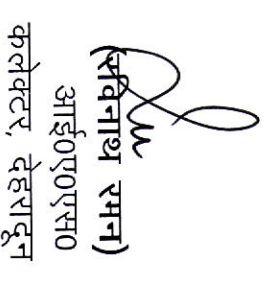 (रविनाथ रमन)
आई०ए०एस०
कलेक्टर, देहरादून